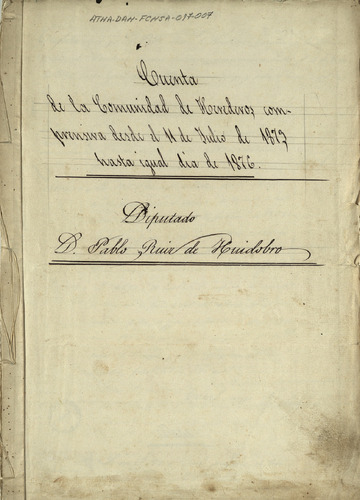 ATHA-DAH-FCNSA-097-007
Cuenta
de la Comunidad de Herederos com-
prensiva desde el 11 de Julio de 1873
hasta igual dia de 1876.
Diputado
D. Pablo Ruiz de Huidobro